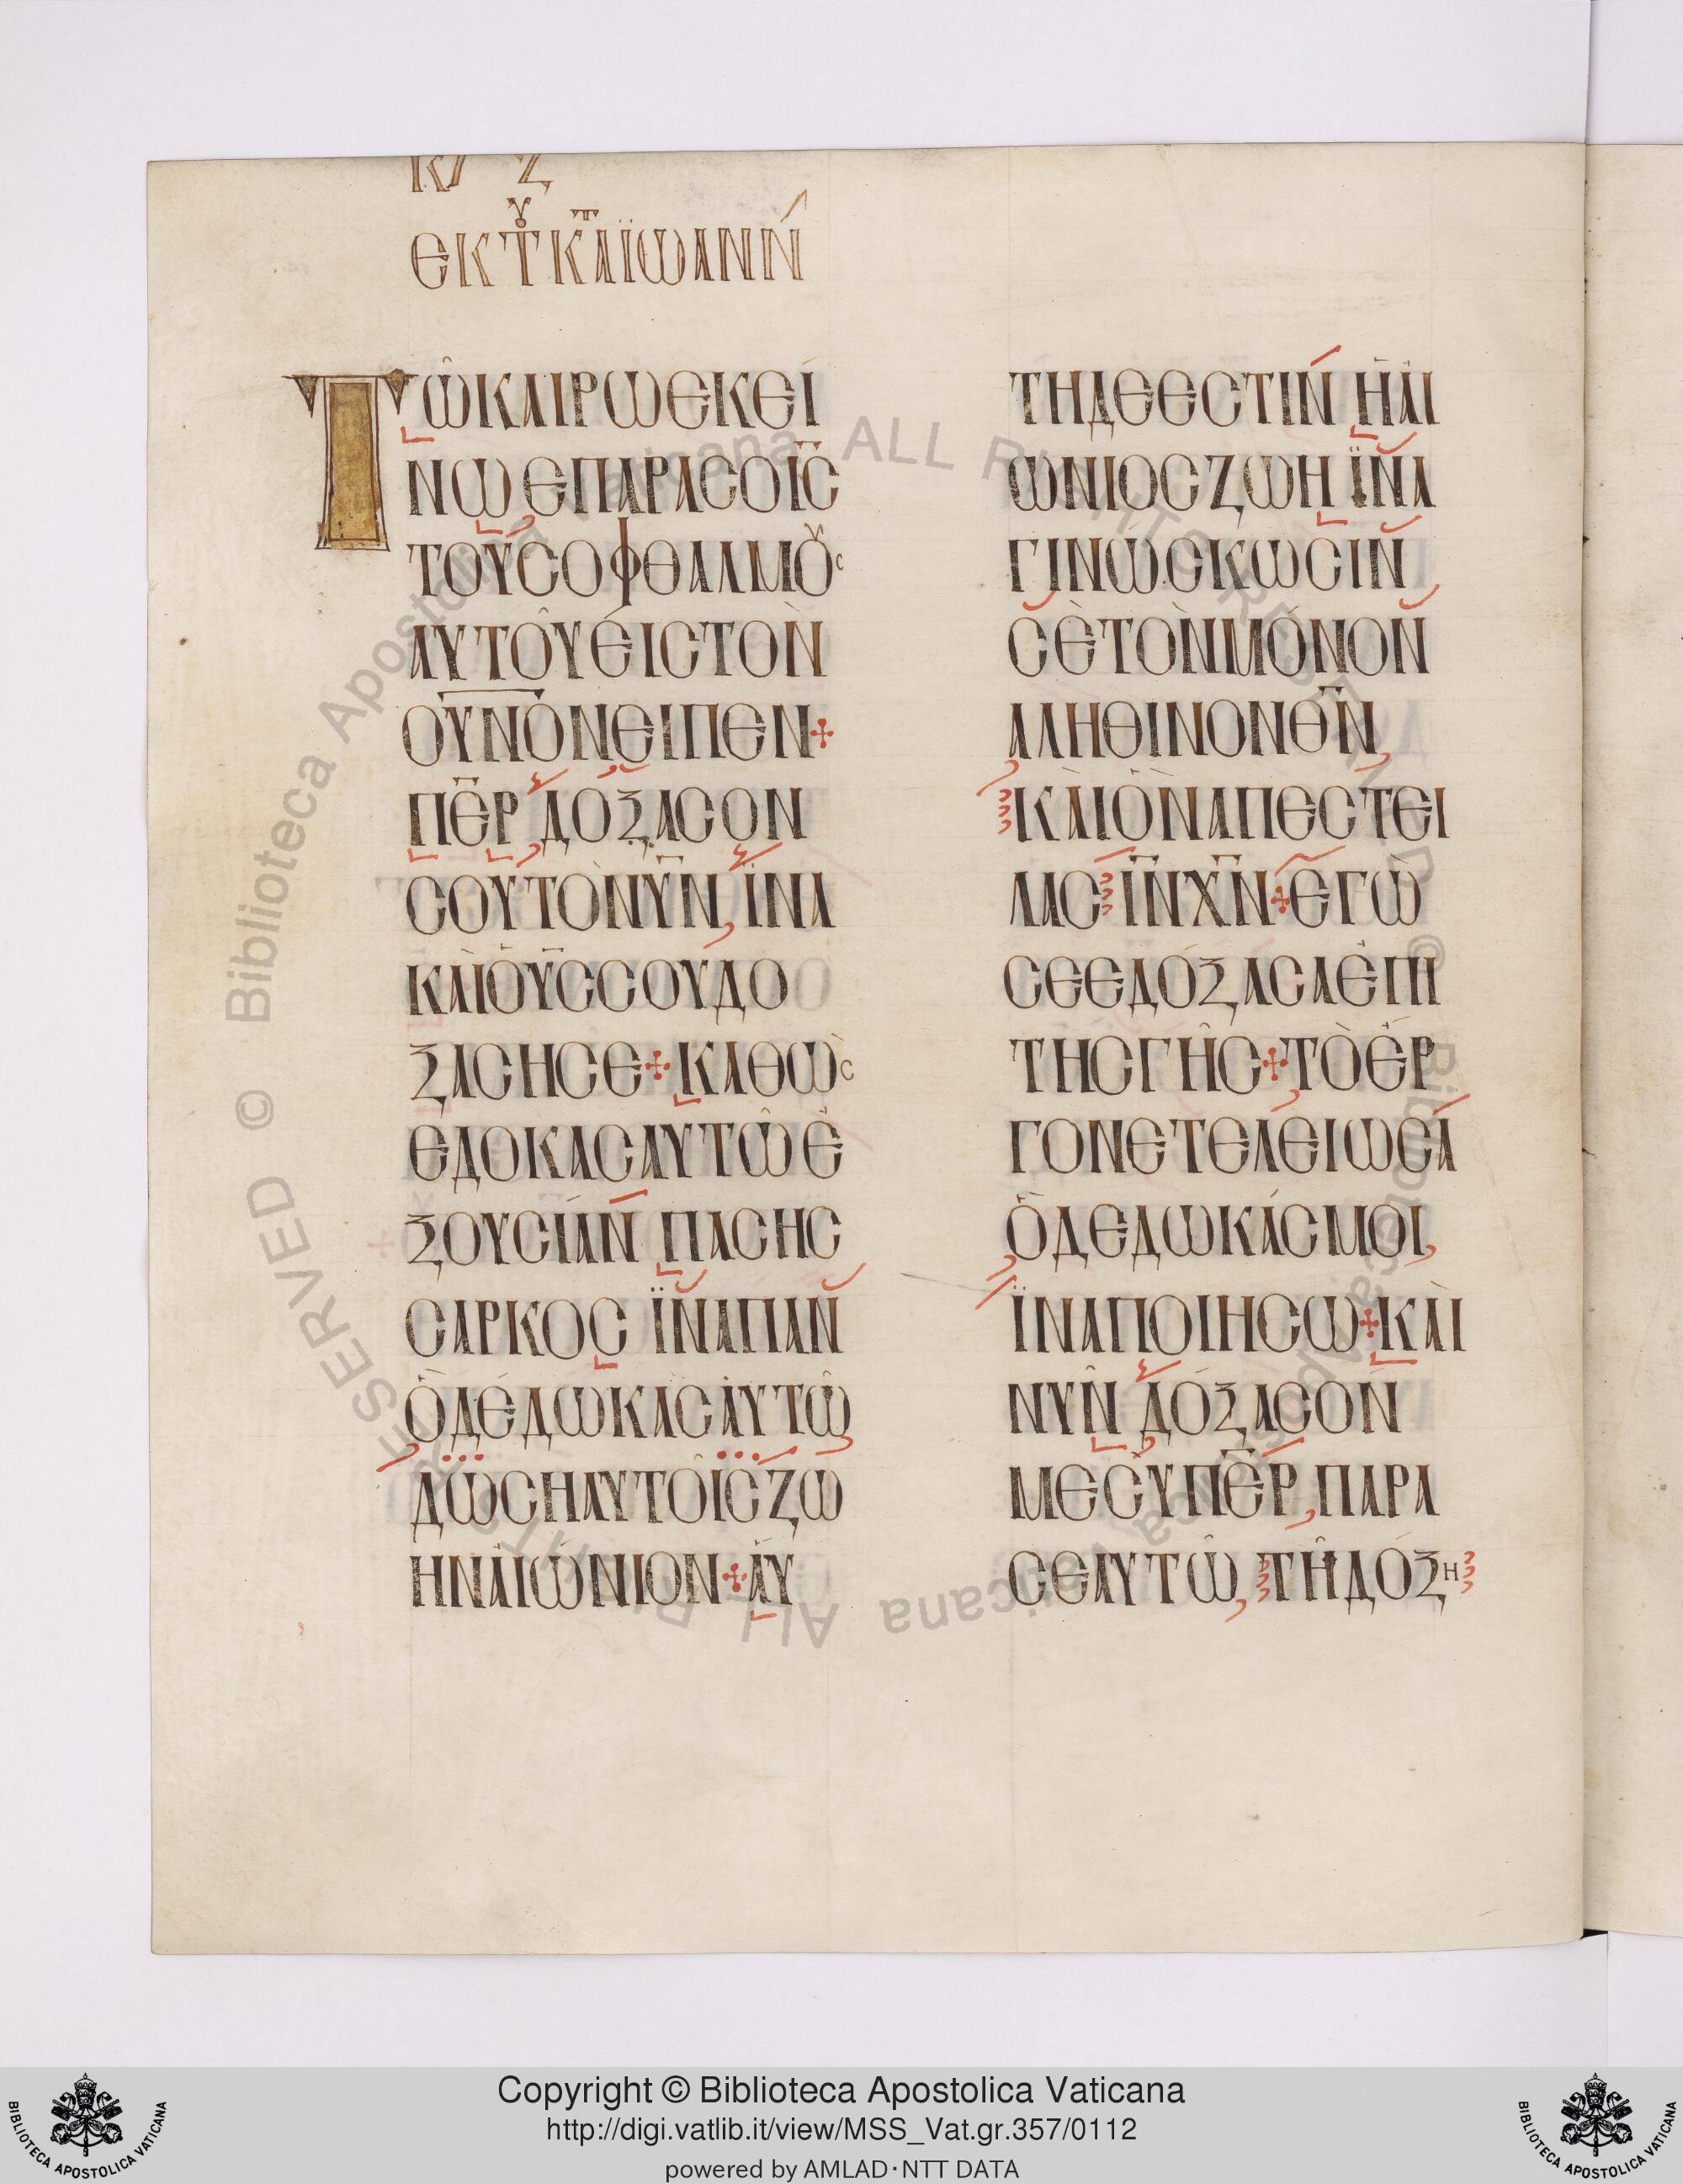 ΚΥ Ζ
ΕΚ ΤΟΥ ΚΑΤ ΙΩΑΝΝ
ΤΩ ΚΑΙΡΩ ΕΚΕΙ
ΝΩ ΕΠΑΡΑC Ο ΙC
ΤΟΥC ΟΦΘΑΛΜΟΥC
ΑΥΤΟΥ ΕΙC ΤΟΝ
ΟΥΝΟΝ ΕΙΠΕΝ
ΠΕΡ ΔΟΞΑCΟΝ
CΟΥ ΤΟΝ ΥΝ, ΙΝΑ
ΚΑΙ Ο ΥC CΟΥ ΔΟ
ΞΑCΗ CΕ ΚΑΘΩC
ΕΔΟΚΑC ΑΥΤΩ Ε
ΞΟΥCΙΑΝ ΠΑCΗC
CΑΡΚΟC ΙΝΑ ΠΑΝ
Ο ΔΕΔΩΚΑC ΑΥΤΩ
ΔΩCΗ ΑΥΤΟΙC ΖΩ
ΗΝ ΑΙΩΝΙΟΝ ΑΥ
ΤΗ ΔΕ ΕCΤΙΝ Η ΑΙ
ΩΝΙΟC ΖΩΗ ΙΝΑ
ΓΙΝΩCΚΩCΙΝ
CΕ ΤΟΝ ΜΟΝΟΝ
ΑΛΗΘΙΝΟΝ ΘΝ,
ΚΑΙ ΟΝ ΑΠΕCΤΕΙ
ΛΑC ΙΝ ΧΝ ΕΓΩ
CΕ ΕΔΟΞΑCΑ ΕΠΙ
ΤΗC ΓΗC ΤΟ ΕΡ
ΓΟΝ ΕΤΕΛΕΙΩCΑ
Ο ΔΕΔΩΚΑC ΜΟΙ,
ΙΝΑ ΠΟΙΗCΩ ΚΑΙ
ΝΥΝ ΔΟΞΑCΟΝ
ΜΕ CΥ ΠΕΡ, ΠΑΡΑ
CΕΑΥΤΩ, ΤΗ ΔΟΞΗ
Copyright © Biblioteca Apostolica Vaticana
http://digi.vatlib.it/view/MSS_Vat.gr.357/0112
powered by AMLAD·NTT DATA
BIBLIOTECA APOSTOLICA VATICANA
BIBLIOTECA APOSTOLICA VATICANA
© Biblioteca Apostolica Vaticana ALL RIGHTS RESERVED